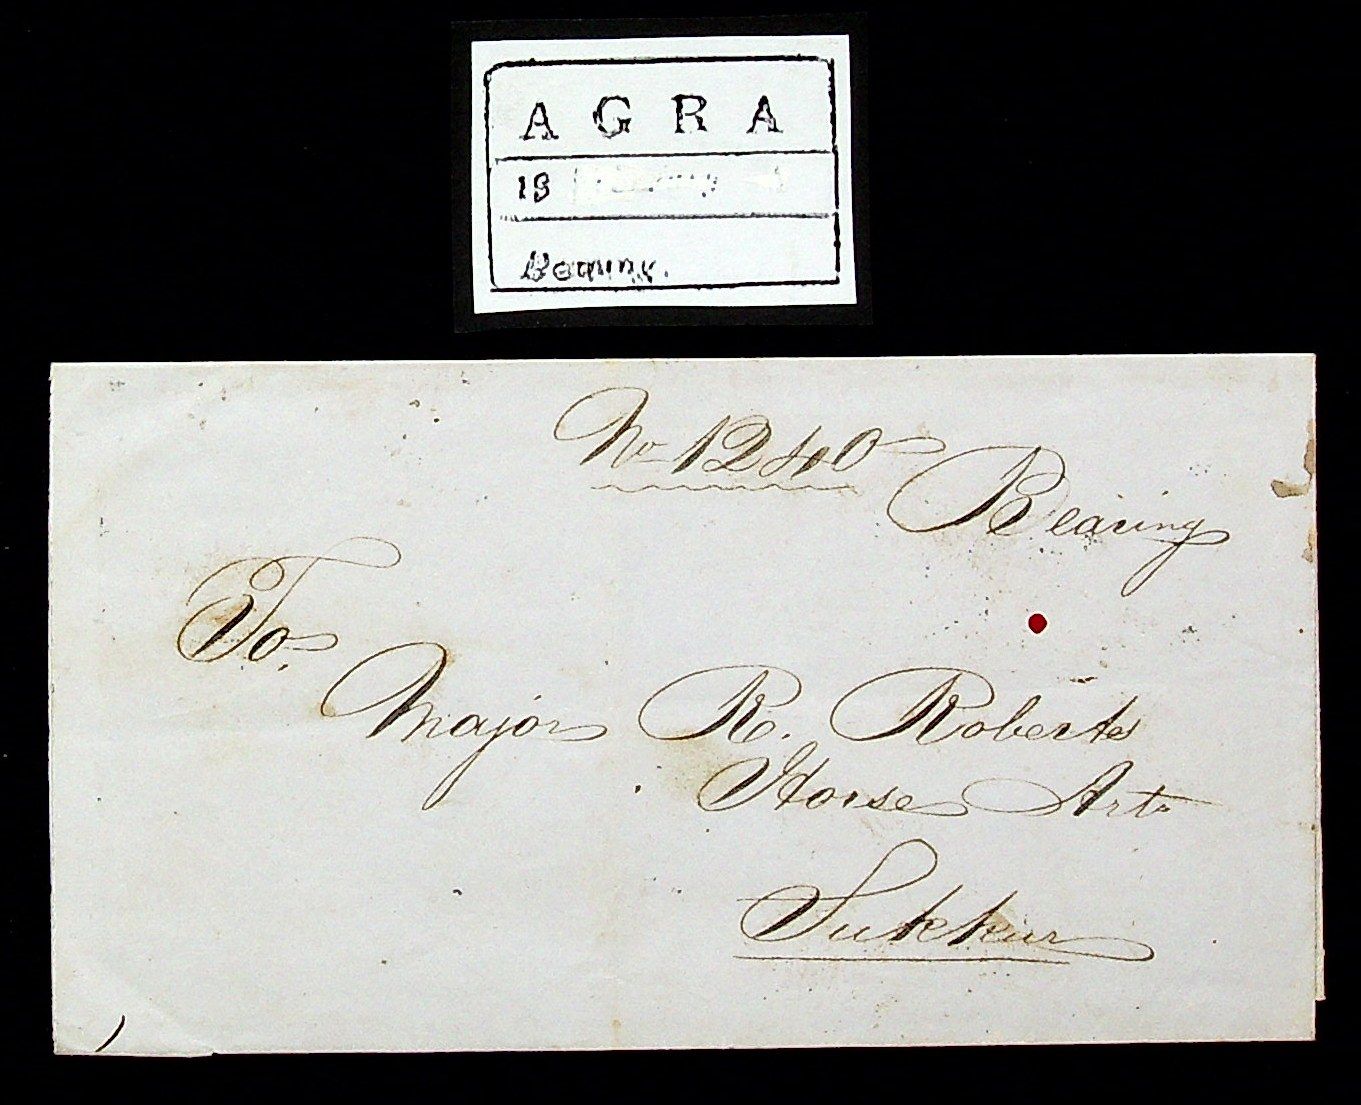 AGRA
18
Bearing.
No 1240
Bearing
To,
Major R. Roberts
Horse Arty
Sukkur